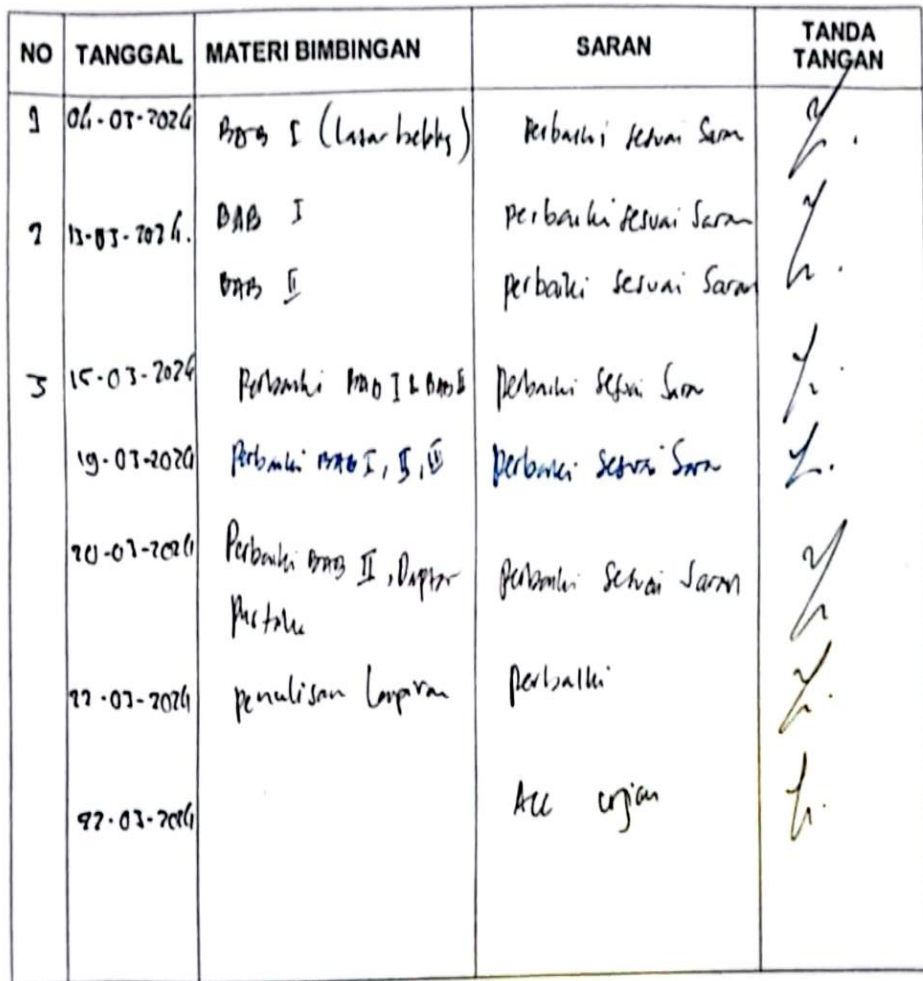 NO TANGGAL MATERI BIMBINGAN SARAN TANDA TANGAN
1 04-03-2024 BAB I (Latar belakng) Perbaiki sesuai Saran
2 13-03-2024. BAB I perbaiki sesuai Saran
BAB II perbaiki sesuai Saran
3 15-03-2024 Perbaiki BAB I & BAB II perbaiki sesuai Saran
19-03-2024 Perbaiki BAB I, II, III perbaiki sesuai Saran
20-03-2024 Perbaiki BAB II, Daptar perbaiki sesuai Saran
Pustaka
22-03-2024 penulisan Laporan perbaiki
22-03-2024 ACC ujian